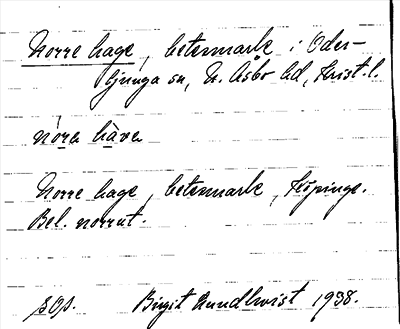 Norre hage, betesmark i Oder-
ljunga sn, N. Åsbo hd, Krist. l.
nöra hava
Norre hage, betesmark, Köpinge.
Bel. norrut.
sop. Birgit Lundkvist 1938.